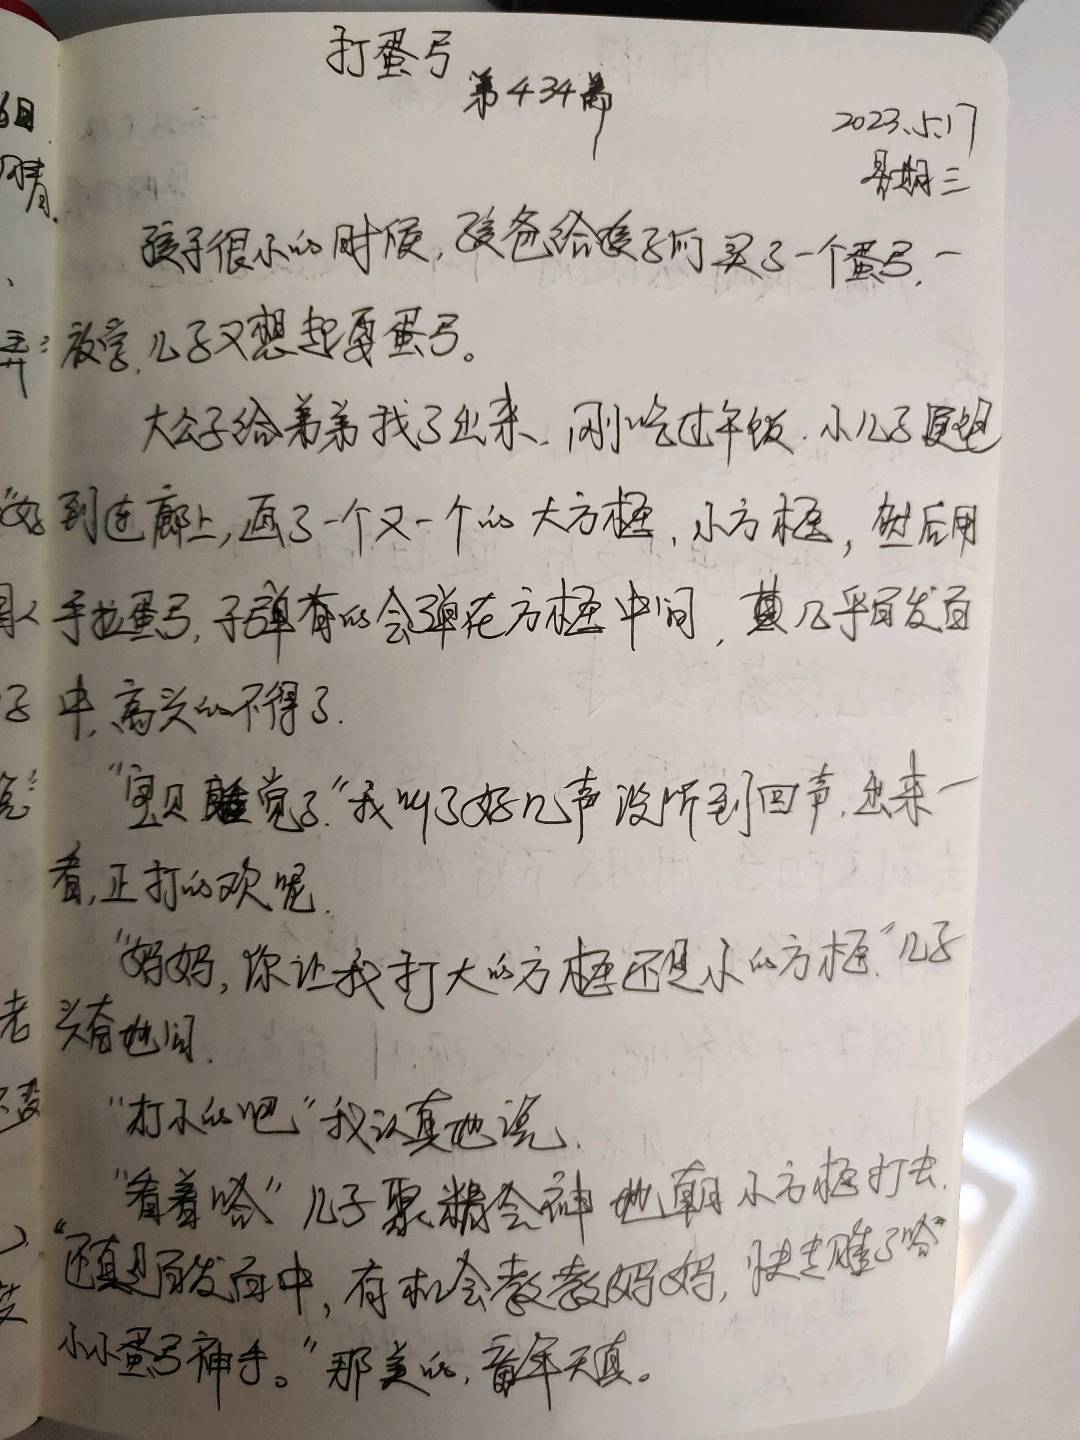 打蛋弓
第434篇
2023.5.17
星期三
孩子很小的时候,孩爸给孩子们买了一个蛋弓,一
放学,儿子又想起要蛋弓。
大公子给弟弟找了出来.刚吃过午饭.小儿子便跑
到连廊上,画了一个又一个的大方框,小方框,然后用
手拉蛋弓,子弹有的会弹在方框中间,几乎百发百
中,高兴的不得了.
"宝贝睡觉了."我叫了好几声没听到回声.出来一
看,正打的欢呢.
"妈妈,你让我打大的方框还是小的方框."儿子
头有地问.
"打小的吧"我认真地说.
"看着哈"儿子聚精会神地朝小方框打去.
"还真是百发百中,有机会教教妈妈,快去睡了哈"
小小蛋弓神手。"那美的,童年天真。
6日
晴.
弄
"好
子
老